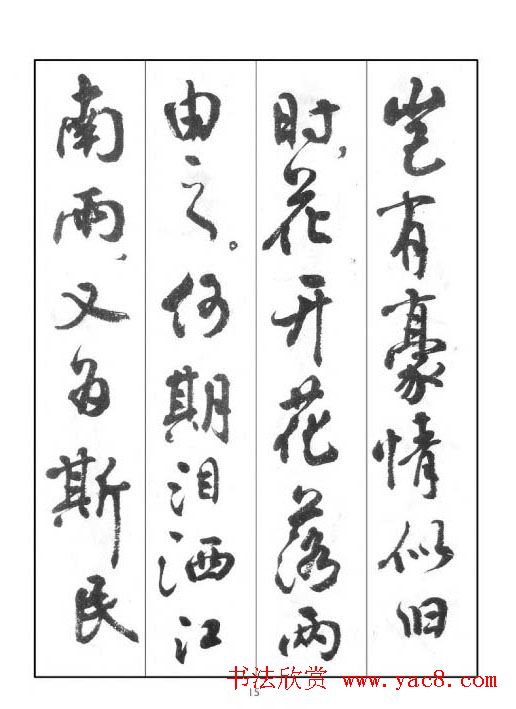 岂有豪情似旧
时，花开花落两
由之。何期泪洒江
南雨，又为斯民
书法欣赏 www.yac8.com
15